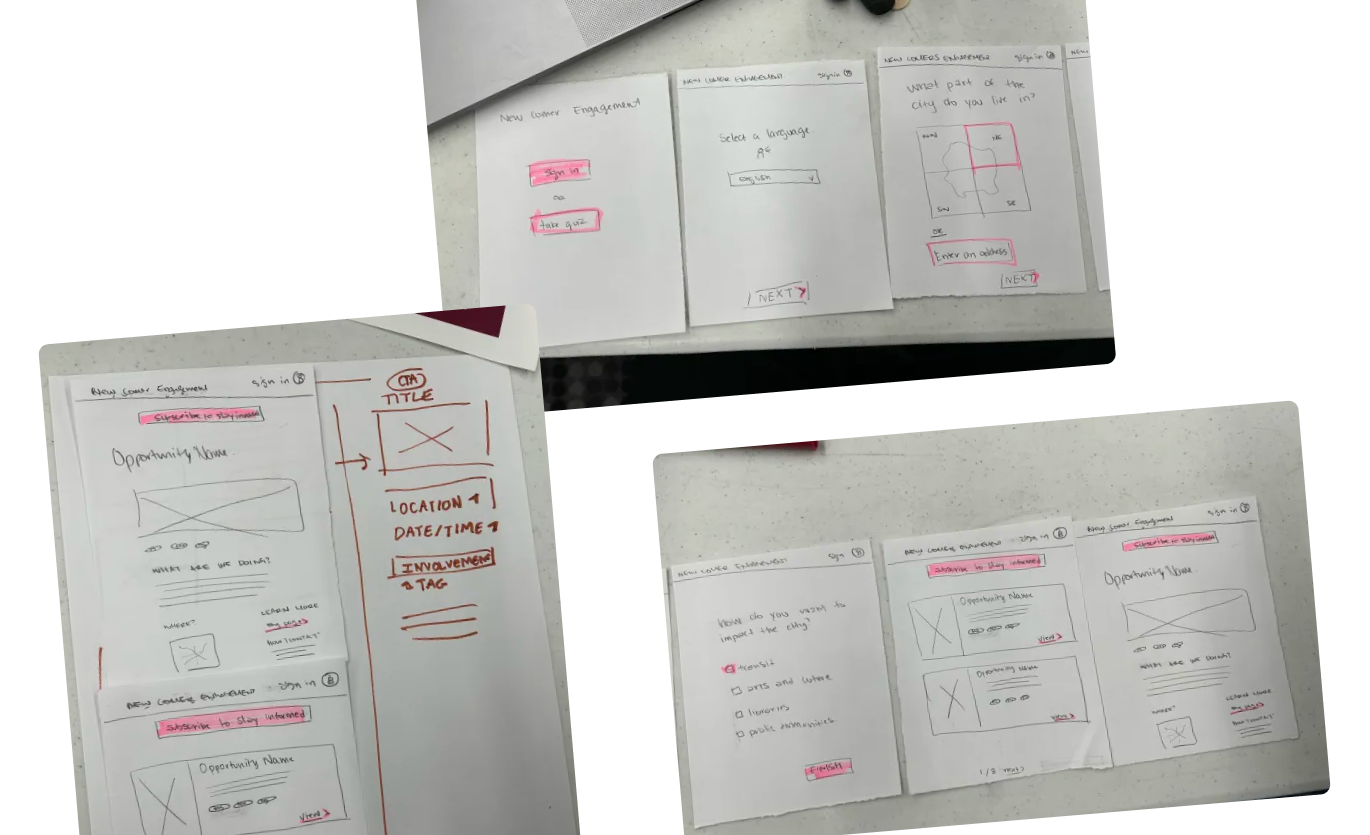 New Comer Engagement
Sign in
OR
take quiz
NEW COMER ENGAGEMENT
sign in
Select a language
English
NEXT
NEW COMERS ENGAGEMENT
sign in
What part of the
city do you live in?
NW
NE
SW
SE
OR
Enter an address
NEXT
NEW
New Comer Engagement
sign in
Subscribe to stay informed
Opportunity Name
WHAT ARE WE DOING?
WHERE?
LEARN MORE
CONTACT
NEW COMERS ENGAGEMENT
sign in
subscribe to stay informed
Opportunity Name
View
CTA
TITLE
LOCATION
DATE/TIME
INVOLVEMENT
TAG
NEW COMER ENGAGEMENT
sign
How do you want to
impact the city?
transit
arts and
libraries
public amenities
FINISH
NEW COMERS ENGAGEMENT
sign in
subscribe to stay informed
Opportunity Name
View
Opportunity Name
View
1/8 next
New Comer Engagement
sign in
Subscribe to stay informed
Opportunity Name
WHAT ARE WE DOING?
WHERE?
LEARN MORE
CONTACT